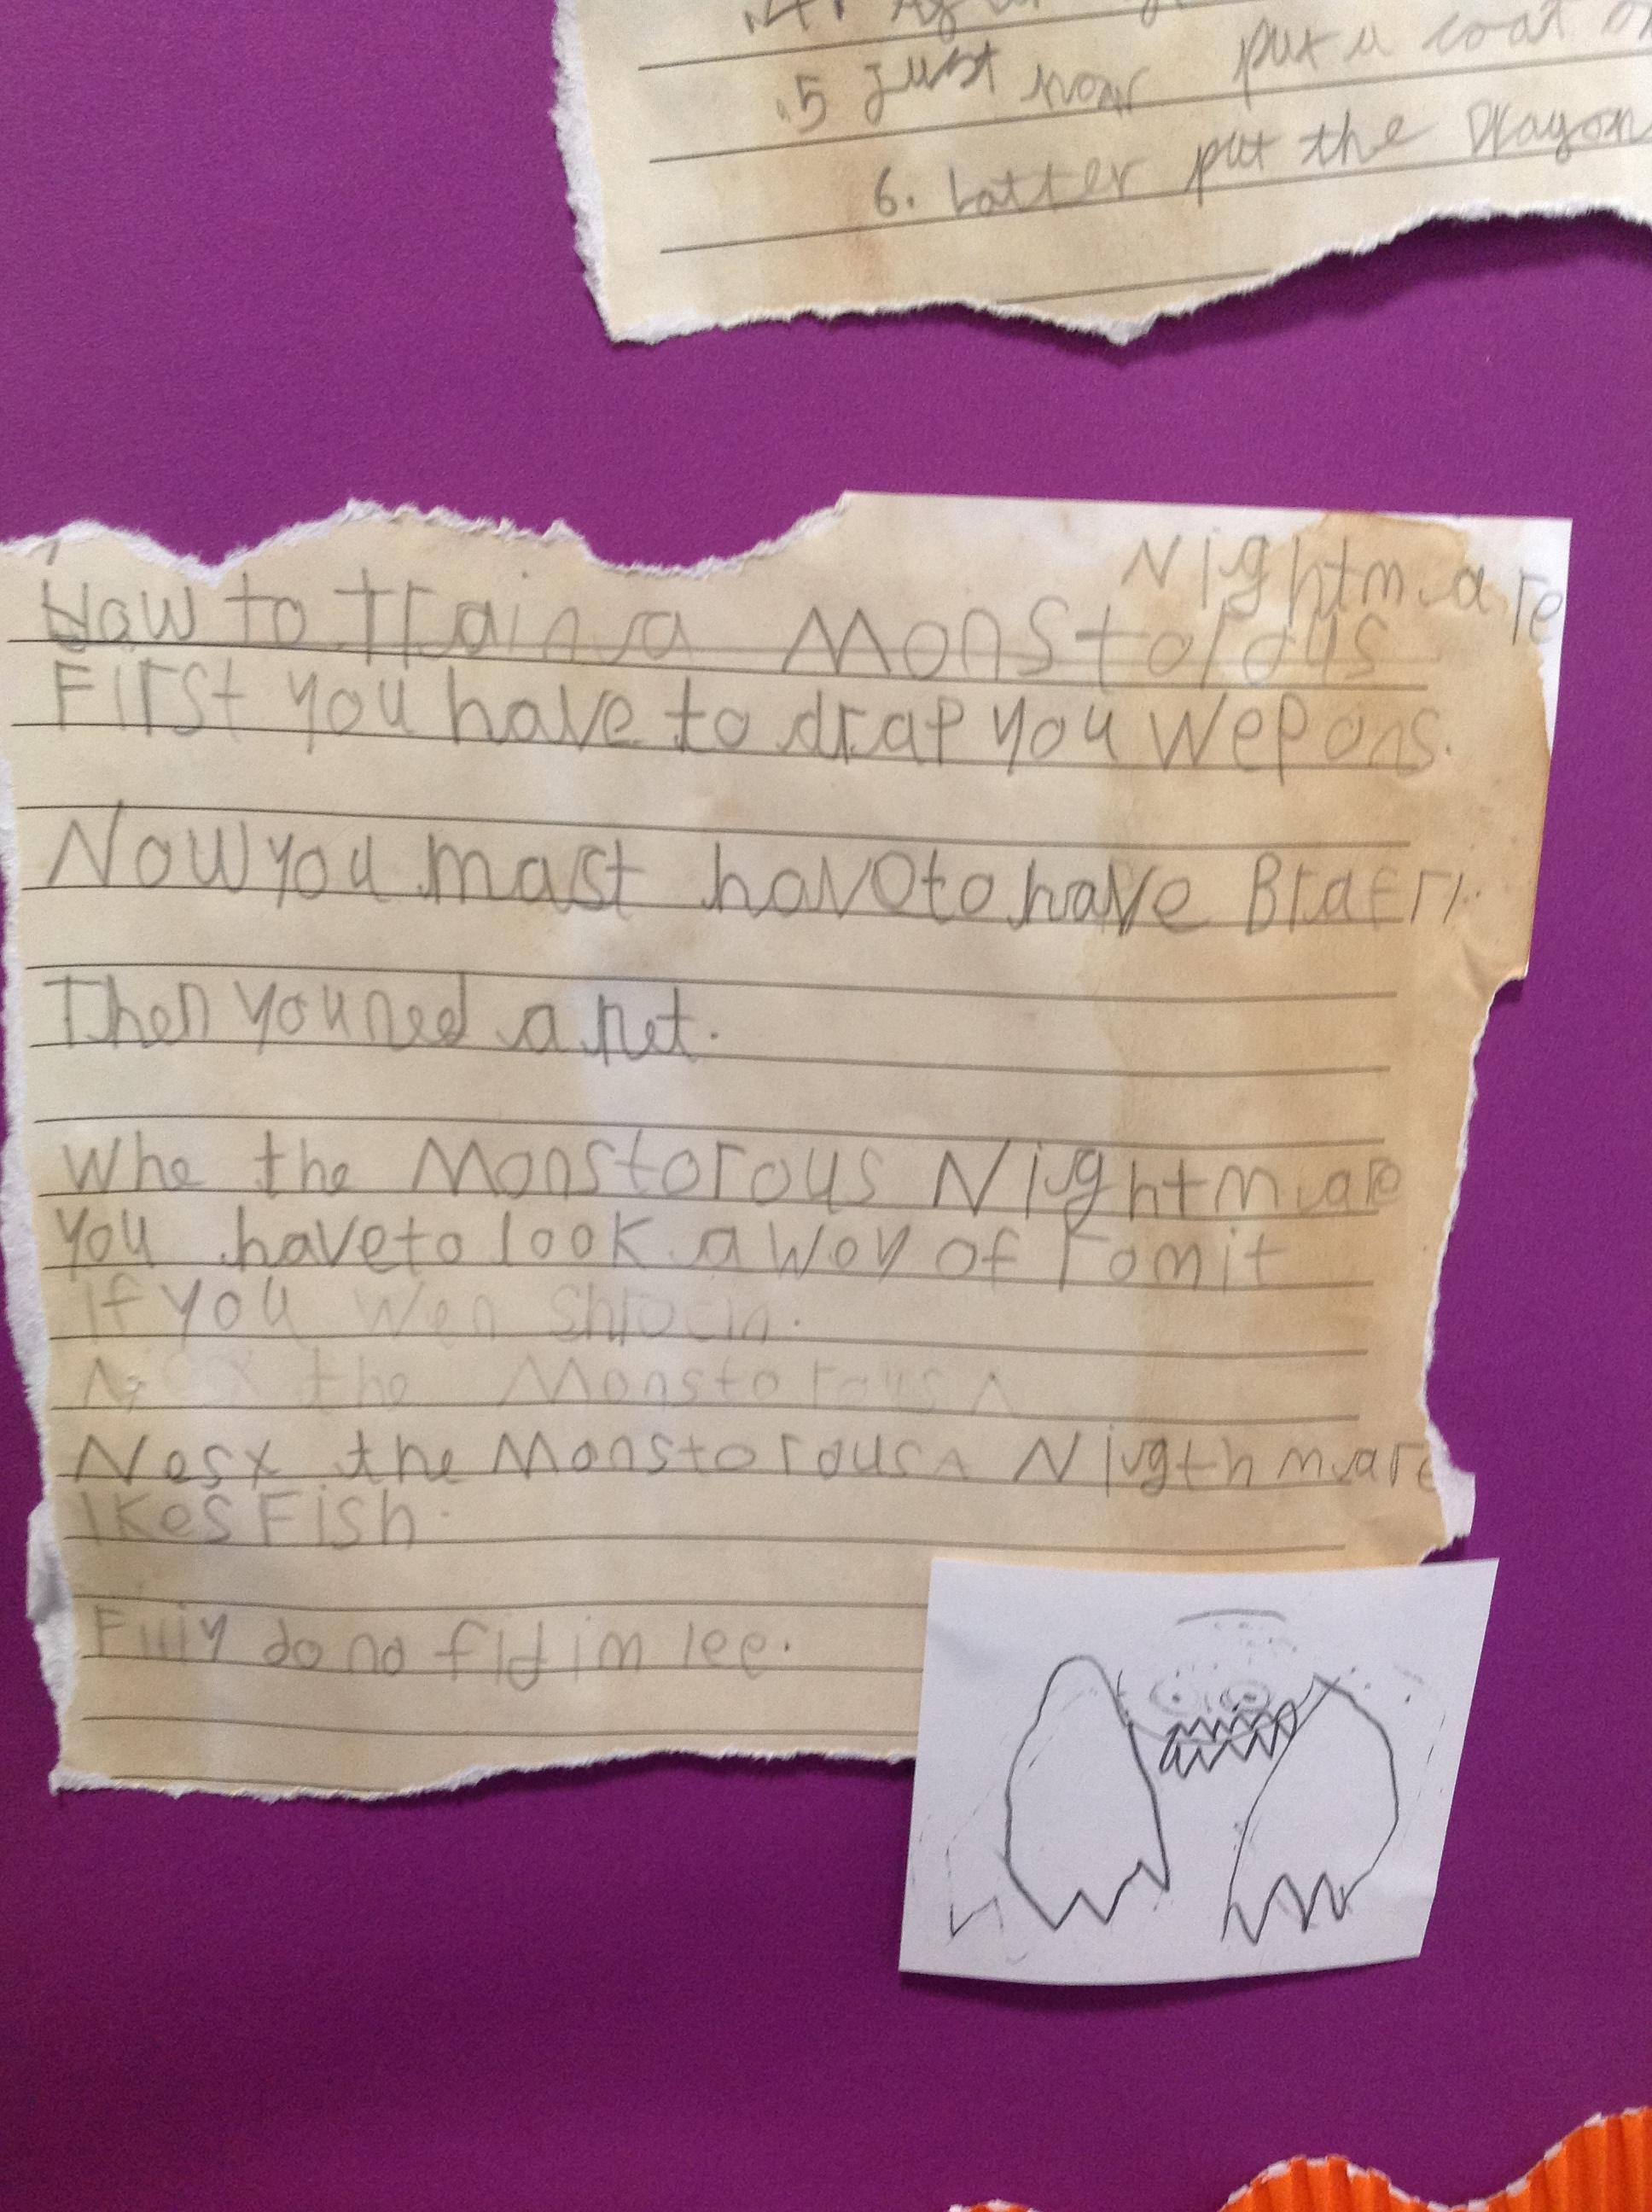 5 Just now put a coat
6. Latter put the Dragon
Nightmare
How to Train a Monstorous
First you have to drap you wepons.
Now you mast haveto have Braery.
Then you ned a net.
Whe the Monstorous Nightmare
you haveto look a Way of Fomit
if you wen
the Monstorous N
Nesx the Monstorous Nigthmare
lkes Fish.
Filliy do no fid im lee.